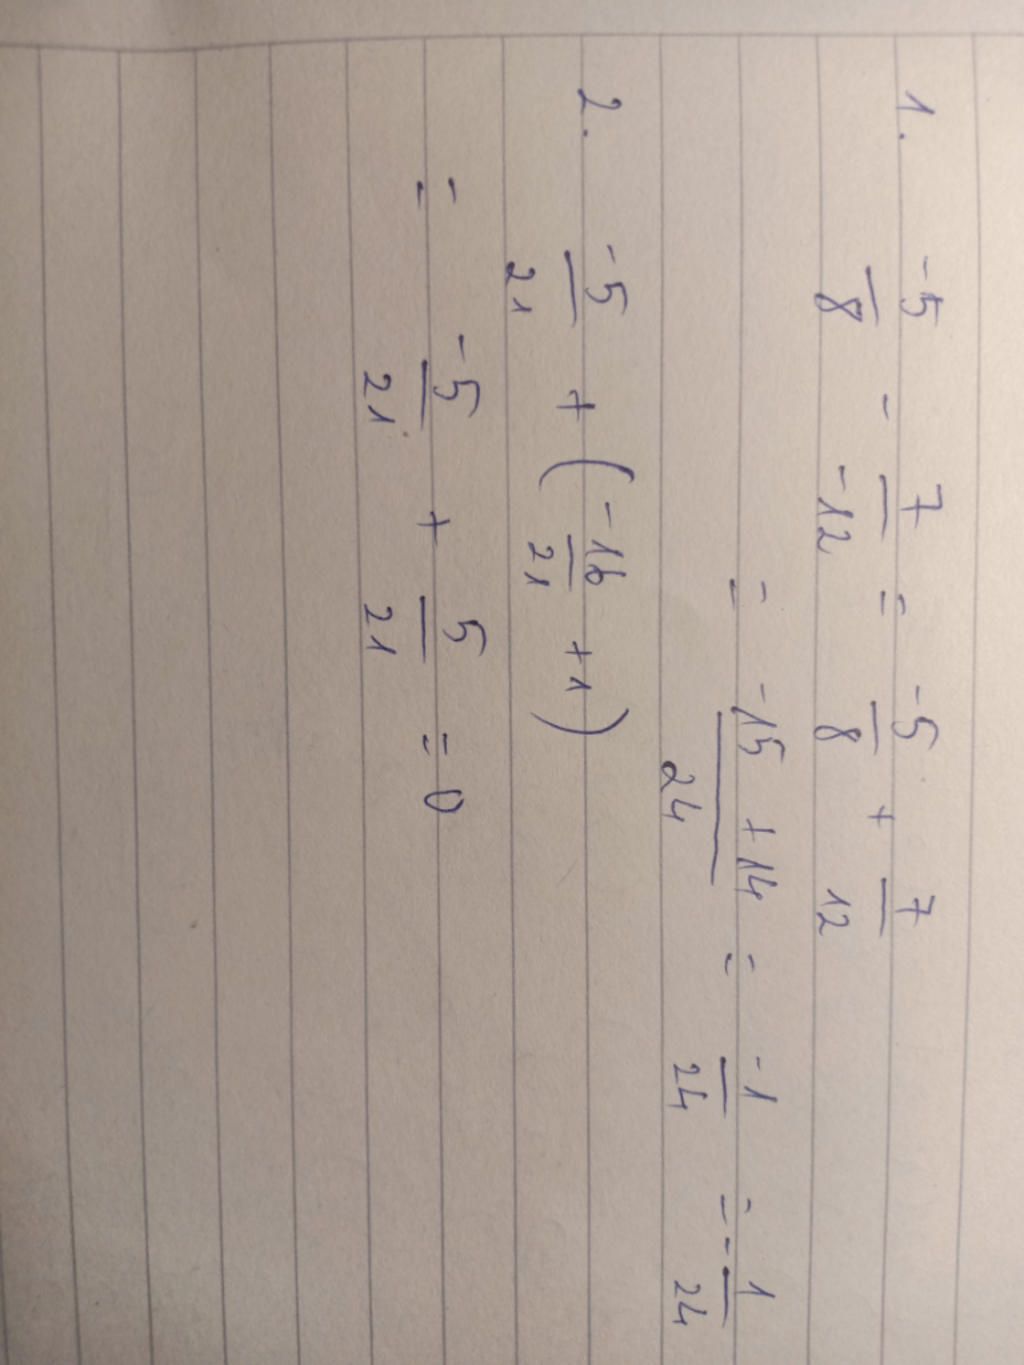 1. -5/8 - 7/-12 = -5/8 + 7/12
= -15 + 14/24 = -1/24 = -1/24
2. -5/21 + (-16/21 + 1)
= -5/21 + 5/21 = 0